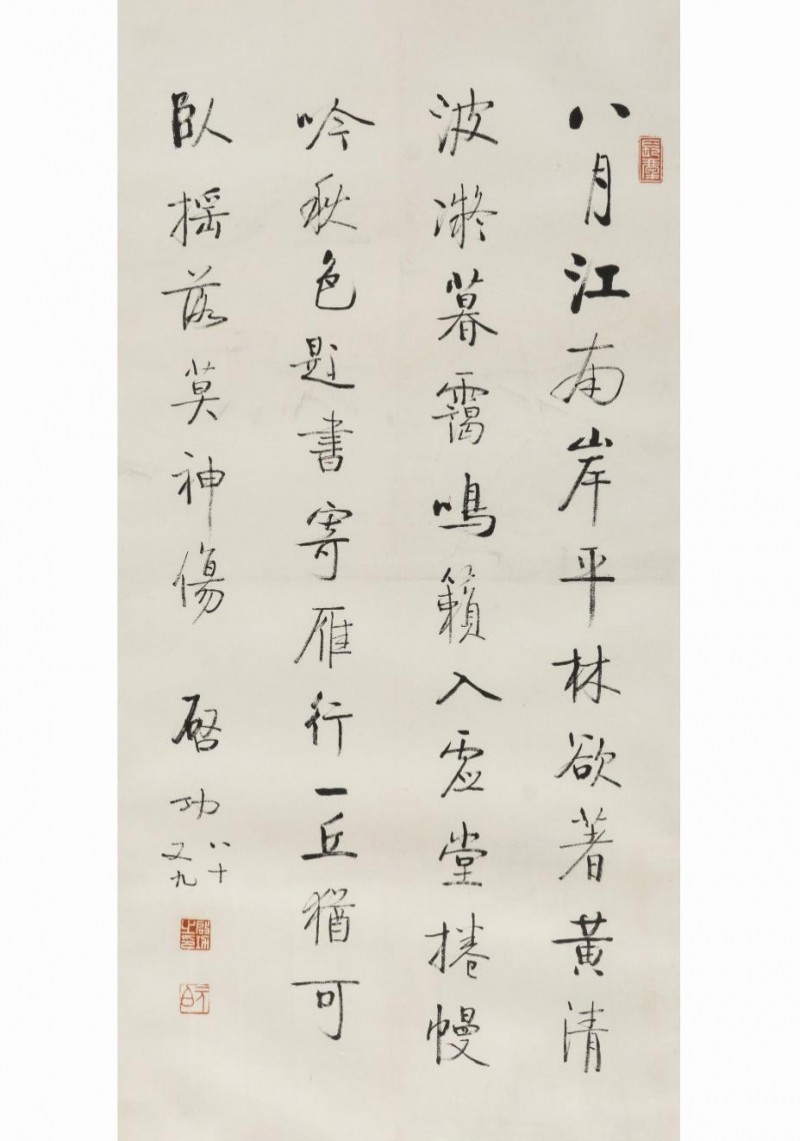 八月江南岸平林欲著黃清
波凝暮靄鳴籟入虛堂捲幔
吟秋色題書寄雁行一丘猶可
臥搖落莫神傷
啓功
八十
又九
啟功之印
元白